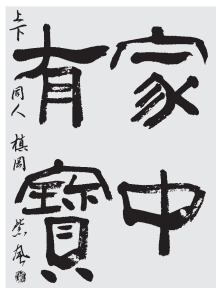 家中
有寶
上下同人 棋岡 紫風